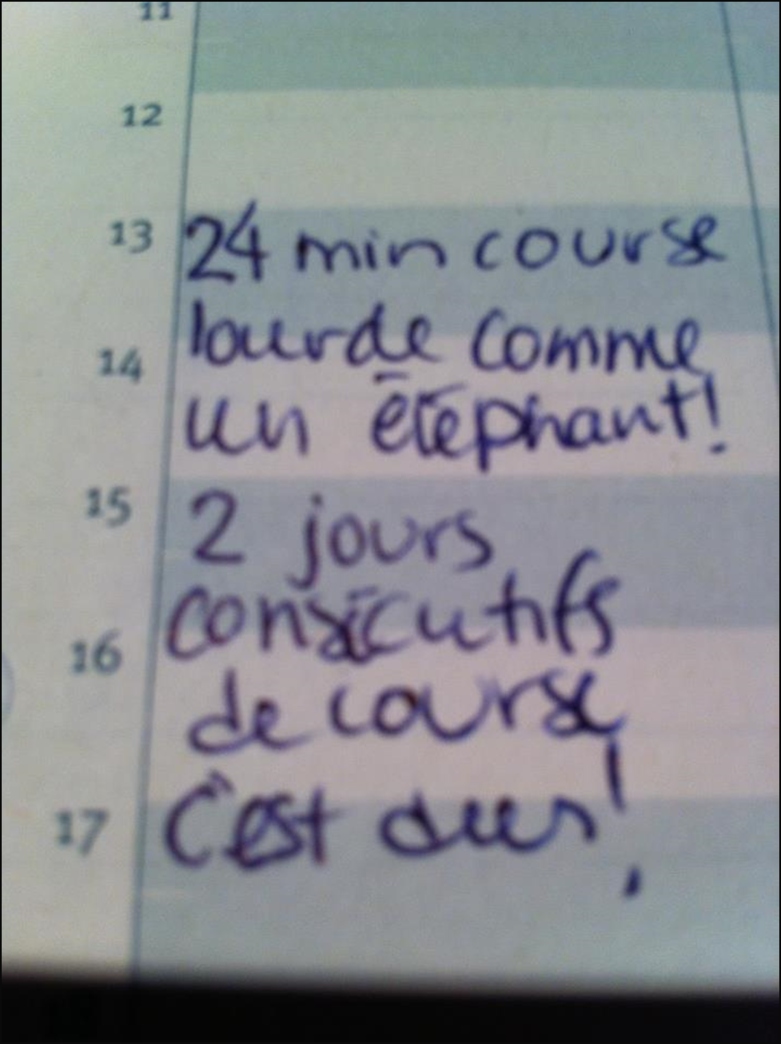 11
12
13 24 min course
lourde comme
14
un éléphant!
15 2 jours
consécutifs
16
de course
C'est dur!
17